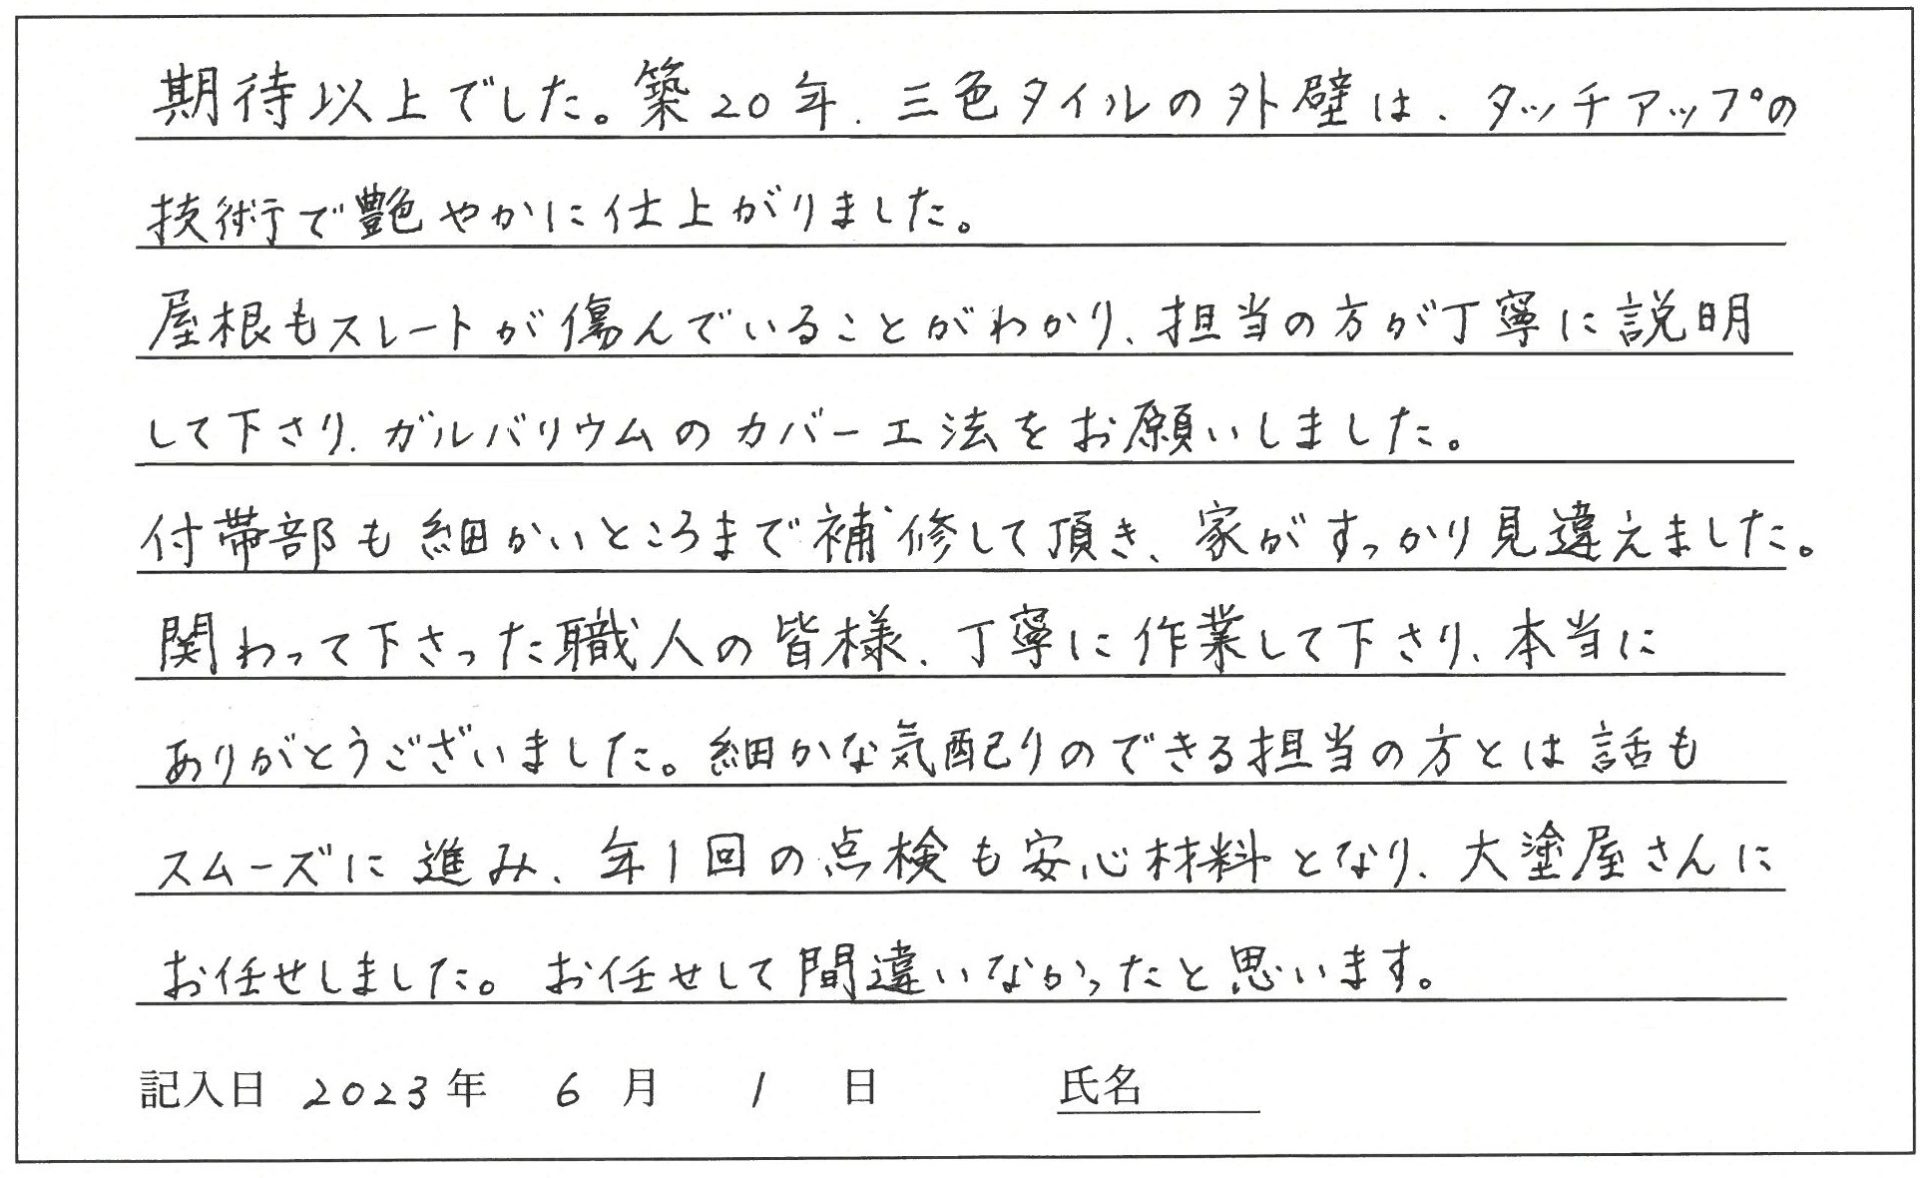 期待以上でした。築20年、三色タイルの外壁は、タッチアップの
技術で艶やかに仕上がりました。
屋根もスレートが傷んでいることがわかり、担当の方が丁寧に説明
して下さり、ガルバリウムのカバー工法をお願いしました。
付帯部も細かいところまで補修して頂き、家がすっかり見違えました。
関わって下さった職人の皆様、丁寧に作業して下さり、本当に
ありがとうございました。細かな気配りのできる担当の方とは話も
スムーズに進み、年1回の点検も安心材料となり、大塗屋さんに
お任せしました。お任せして間違いなかったと思います。
記入日 2023年 6月 1日 氏名